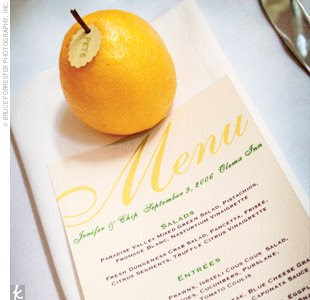 © BRUCE FORRESTER PHOTOGRAPHY, INC.
PETE
Menu
Jenifer & Chip September 9, 2006 Olema Inn
SALADS
PARADISE VALLEY MIXED GREEN SALAD, PISTACHIOS,
FROMAGE BLANC, NASTURTIUM VINAIGRETTE
FRESH DUNGENESS CRAB SALAD, PANCETTA, FRISÉE,
CITRUS SEGMENTS, TRUFFLE CITRUS VINAIGRETTE
ENTRÉES
PRAWNS, ISRAELI COUS COUS SALAD,
CUCUMBERS, PURSLANE,
k